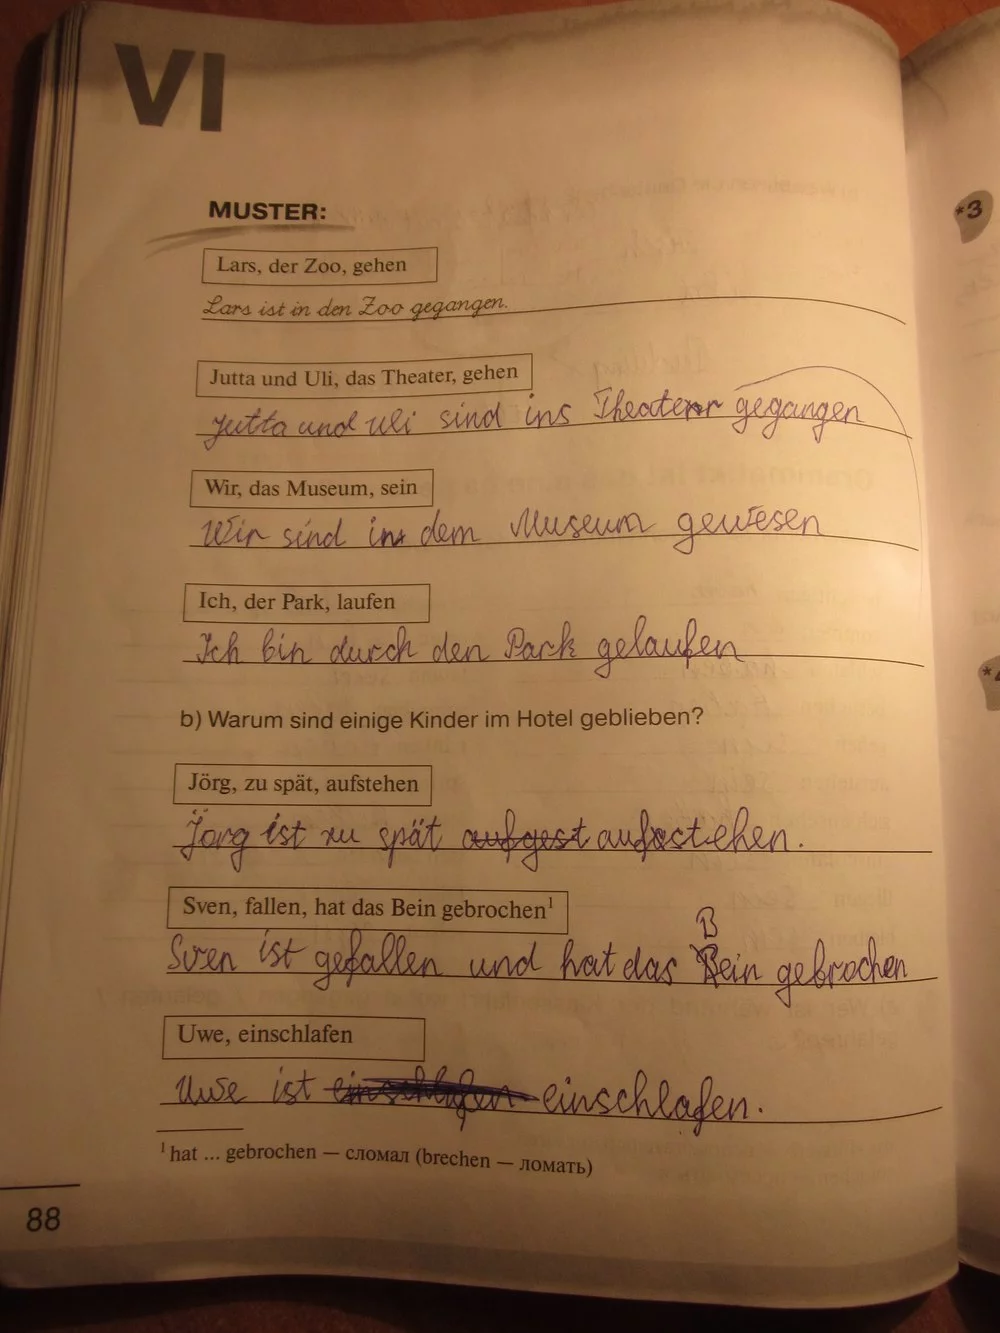 VI
MUSTER:
*3
Lars, der Zoo, gehen
Lars ist in den Zoo gegangen.
Jutta und Uli, das Theater, gehen
Jutta und Uli sind ins Theater gegangen
Wir, das Museum, sein
Wir sind in dem Museum gewesen
Ich, der Park, laufen
Ich bin durch den Park gelaufen
b) Warum sind einige Kinder im Hotel geblieben?
Jörg, zu spät, aufstehen
Jörg ist zu spät aufgest aufstehen.
Sven, fallen, hat das Bein gebrochen¹
B
Sven ist gefallen und hat das Bein gebrochen
Uwe, einschlafen
Uwe ist einschlafen einschlafen.
¹ hat ... gebrochen — сломал (brechen — ломать)
88